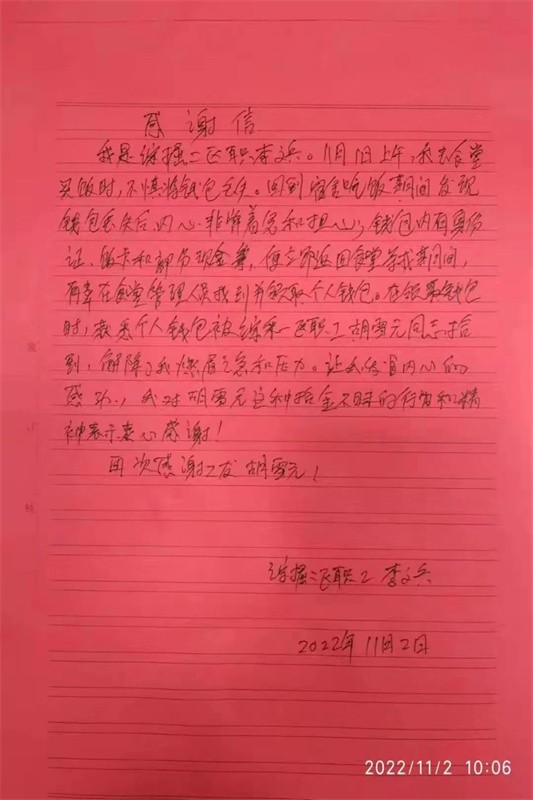 感谢信
我是综掘二区职工李文兵。11月1日上午,我去食堂
买饭时,不慎将钱包丢失。回到宿舍吃饭期间发现
钱包丢失后内心非常着急和担心,钱包内有身份
证、银卡和部分现金等,便立即返回食堂寻找期间,
有幸在食堂管理人员找到并领取个人钱包。在领取钱包
时,获悉个人钱包被综采一区职工胡雷元同志拾
到,解除了我燃眉之急和压力。让我发自内心的
感动,我对胡雷元这种拾金不昧的行为和精
神表示衷心感谢!
再次感谢工友胡雷元!
综掘二区职工 李文兵
2022年11月2日
2022/11/2 10:06